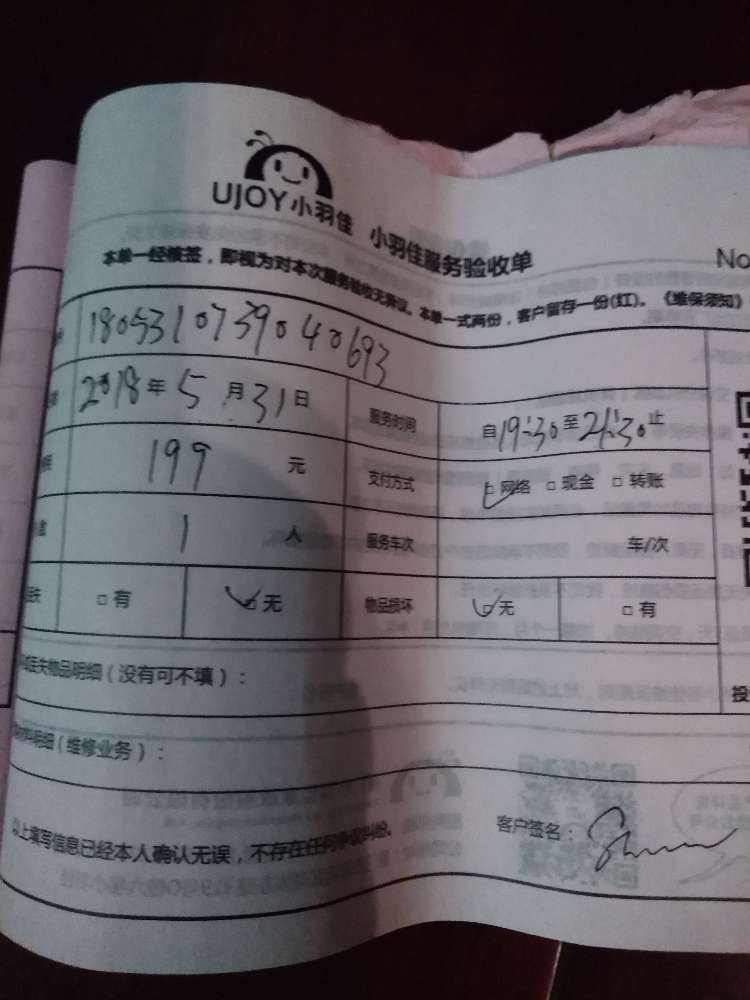 UJOY小羽佳 小羽佳服务验收单
No
本单一经核签，即视为对本次服务验收无异议。本单一式两份，客户留存一份(红)。《维保须知》
1805310739040693
2018年5月31日 服务时间 自19:30至21:30止
199 元 支付方式 □网络 □现金 □转账
1 人 服务车次 车/次
□有 □无 物品损坏 □无 □有
丢失物品明细（没有可不填）：
料明细（维修业务）：
以上填写信息已经本人确认无误，不存在任何争议纠纷。 客户签名：